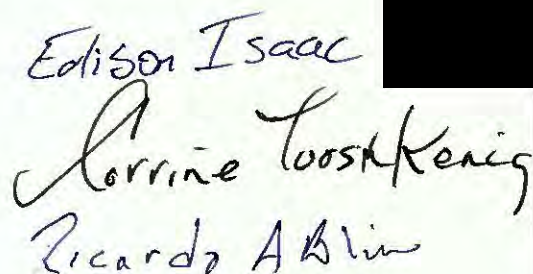 Edison Isaac
Corrine Tooshkenig
Ricardo